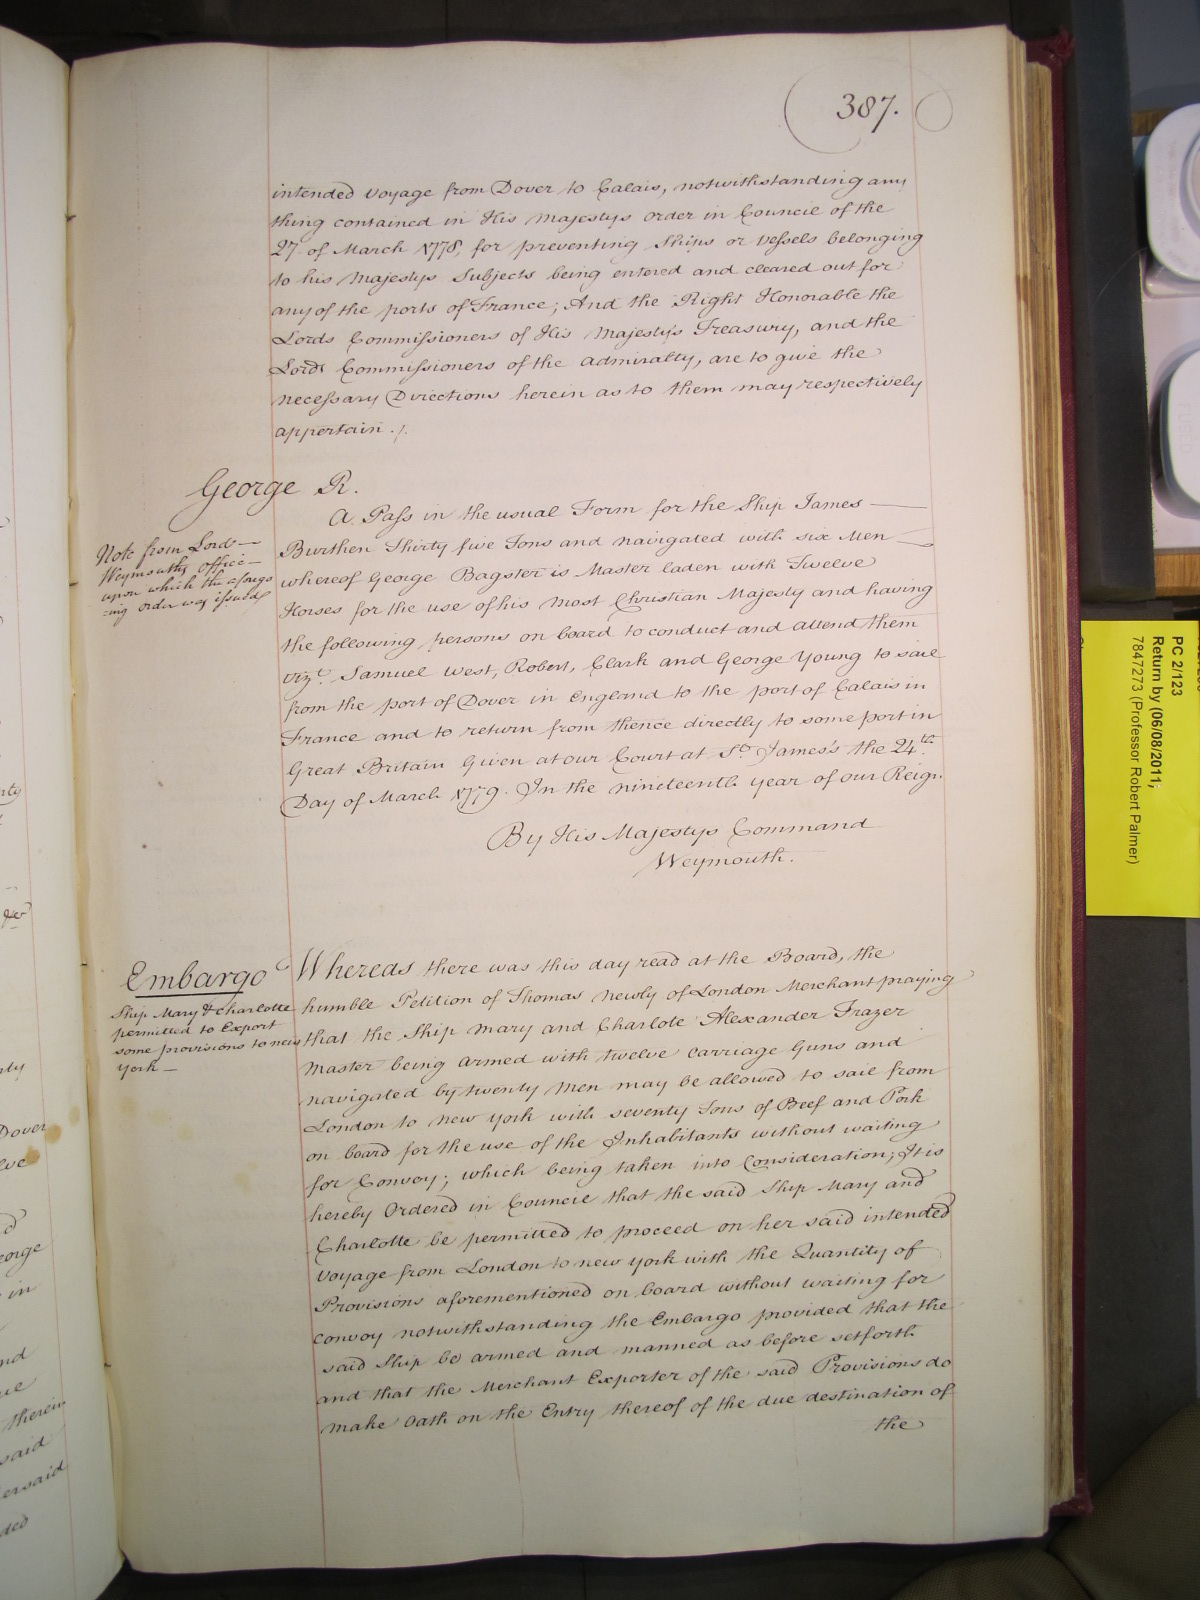 387.
intended Voyage from Dover to Calais, notwithstanding any
thing contained in His Majestys order in Council of the
27 of March 1778, for preventing Ships or Vessels belonging
to his Majestys Subjects being entered and cleared out for
any of the ports of France; And the Right Honorable the
Lords Commissioners of His Majestys Treasury, and the
Lords Commissioners of the Admiralty, are to give the
necessary Directions herein as to them may respectively
appertain ./.
George R.
Note from Lord
Weymouths office
upon which the aforego
=ing order was issued
A Pass in the usual Form for the Ship James
Burthen Thirty five Tons and navigated with six Men
whereof George Bagster is Master laden with Twelve
Horses for the use of his most Christian Majesty and having
the following persons on board to conduct and attend them
vizt. Samuel West, Robert, Clark and George Young to sail
from the port of Dover in England to the port of Calais in
France and to return from thence directly to some port in
Great Britain Given at our Court at St. James's the 24th.
Day of March 1779. In the nineteenth year of our Reign.
By His Majestys Command
Weymouth.
Embargo
Ship Mary & Charlotte
permitted to Export
some provisions to new
york
Whereas there was this day read at the Board, the
humble Petition of Thomas Newly of London Merchant praying
that the Ship Mary and Charlote Alexander Frazer
Master being armed with twelve Carriage Guns and
navigated by twenty Men may be allowed to sail from
London to New York with seventy Tons of Beef and Pork
on board for the use of the Inhabitants without waiting
for Convoy; which being taken into Consideration; It is
hereby Ordered in Council that the said Ship Mary and
Charlotte be permitted to proceed on her said intended
Voyage from London to new york with the Quantity of
Provisions aforementioned on board without waiting for
convoy notwithstanding the Embargo provided that the
said Ship be armed and manned as before setforth
and that the Merchant Exporter of the said Provisions do
make Oath on the Entry thereof of the due destination of
the
PC 2/123
Return by (06/08/2011;
7847273 (Professor Robert Palmer)
Dover
eorge
in
therein
said
ersaid